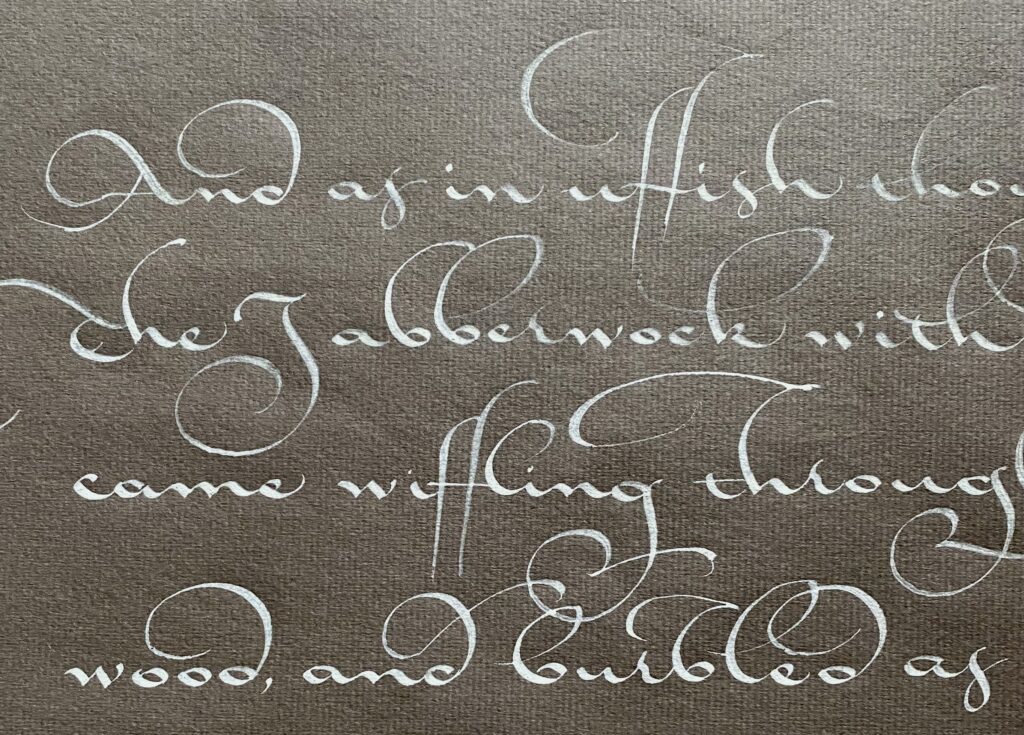 And as in uffish thou
The Jabberwock with
came wiffling through
wood, and burbled as